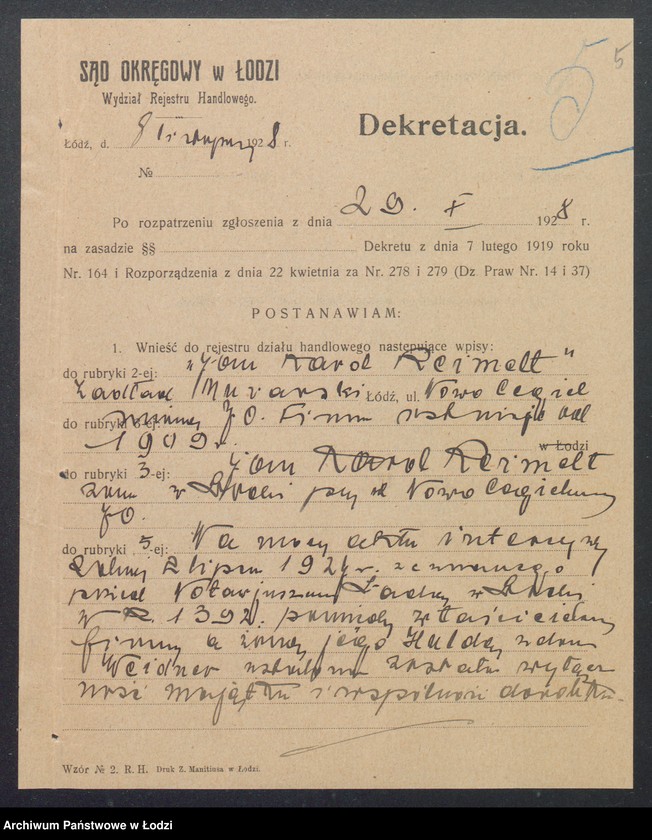 5 5
SĄD OKRĘGOWY w ŁODZI
Wydział Rejestru Handlowego.
Łódź, d. 8 1928 r.
№
Dekretacja.
Po rozpatrzeniu zgłoszenia z dnia 29. X 1928 r.
na zasadzie §§ Dekretu z dnia 7 lutego 1919 roku
Nr. 164 i Rozporządzenia z dnia 22 kwietnia za Nr. 278 i 279 (Dz Praw Nr. 14 i 37)
POSTANAWIAM:
1. Wnieść do rejestru działu handlowego następujące wpisy:
do rubryki 2-ej: „Jan Karol Reimelt"
Zakład Murarski Łódź, ul. Nowo Cegiel
do rubryki -ej: nianej 70. Firma istnieje od
1909 r. w Łodzi
do rubryki 3-ej: Jan Karol Reimelt
zam w Łodzi przy ul Nowo Cegielnianej
70.
do rubryki 5-ej: Na mocy aktu intercyzy
lipca 192 r. zeznanego
przed Notarjuszem w Łodzi
N R. 1392. pomiędzy właścicielem
firmy a żoną jego Huldą z domu
Weidner została wyłącz
ność majątku i wspólność dorobku.
Wzór № 2. R. H. Druk Z. Manitiusa w Łodzi.
Archiwum Państwowe w Łodzi